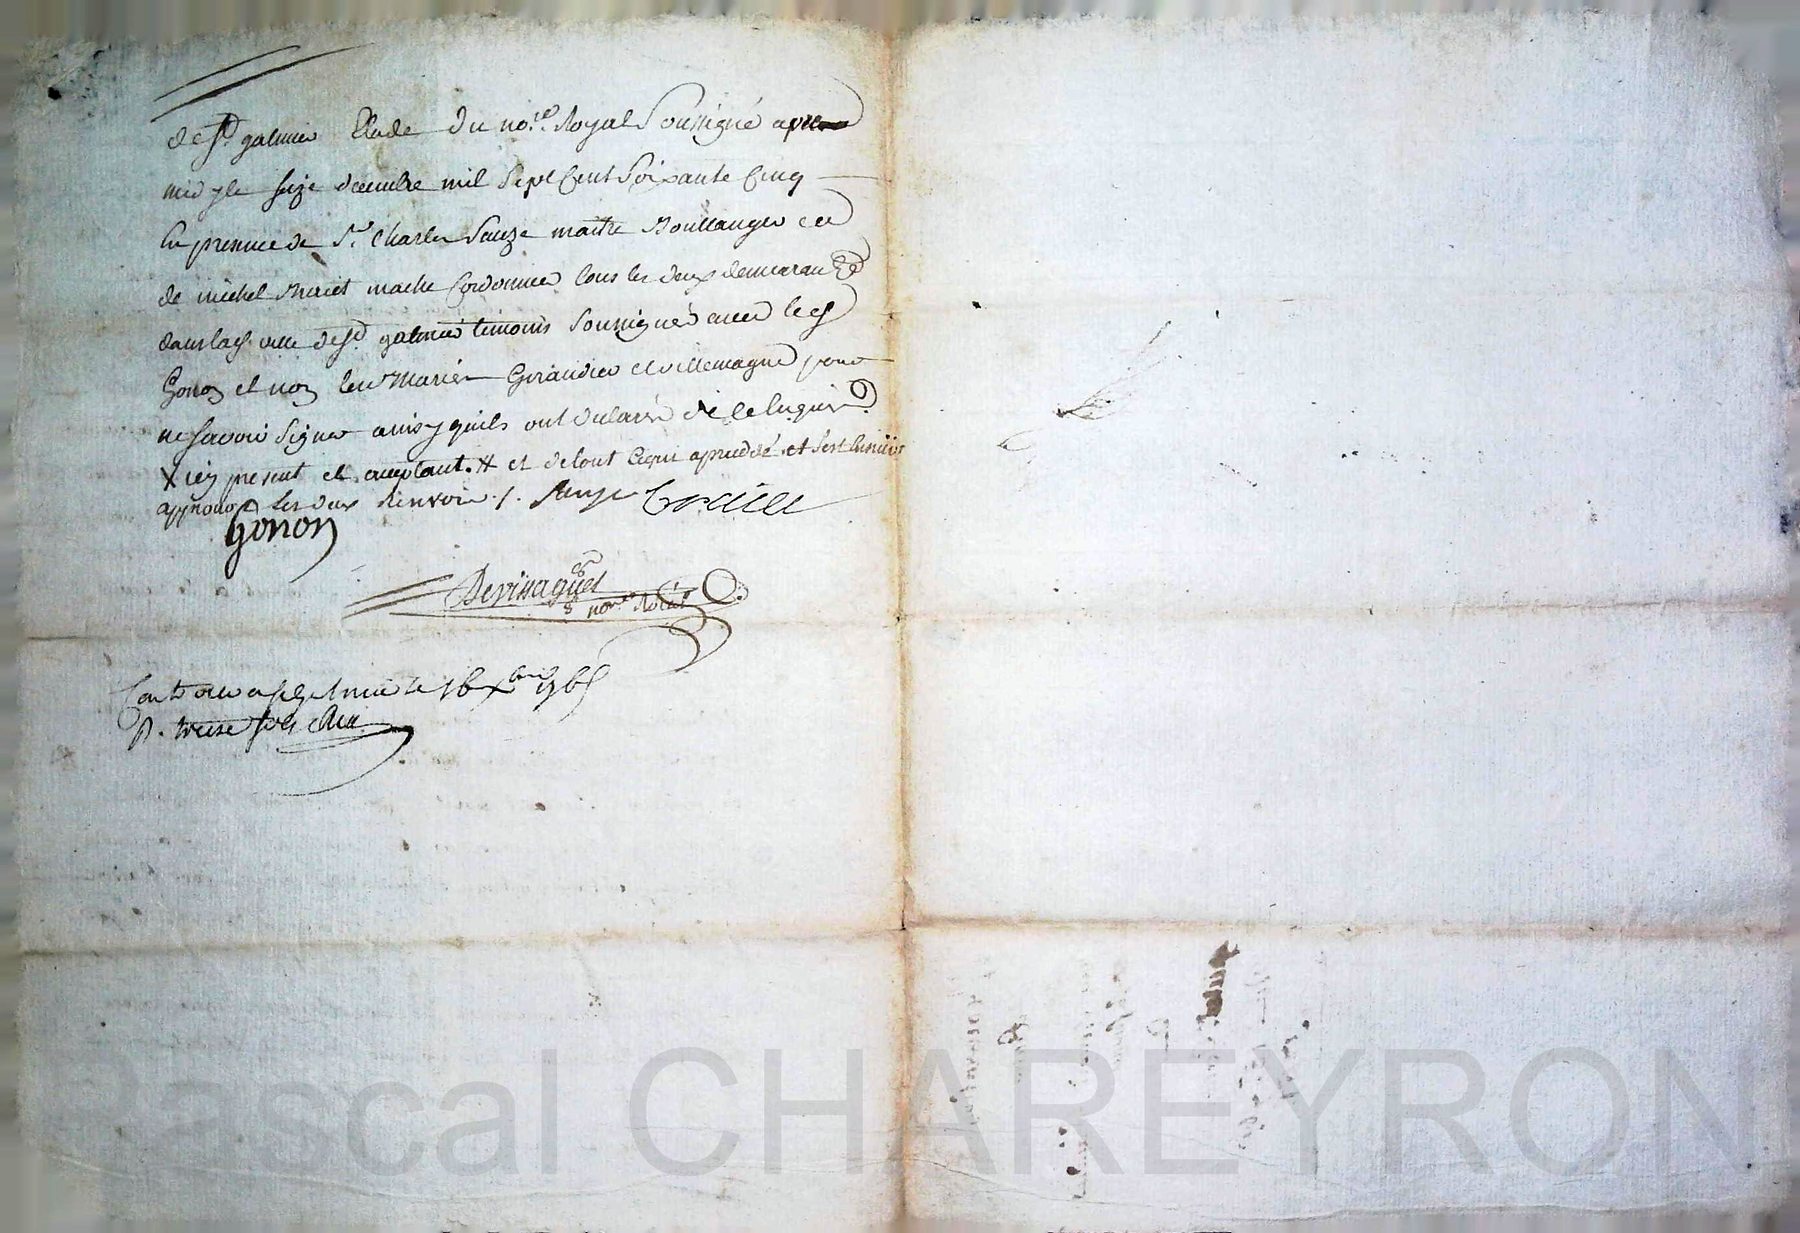 de st galmier Etude du no.re Royal Soussigné apres
midy le seize decembre mil sept Cent Soixante Cinq
En presence de Sr. Charles Sauze maitre Boullanger et
de michel maitre Cordonnier tous les deux demeurant
dans lad. ville de st galmier temoins Soussignés avec led
Gonon et non lesd mariés Giraudier et villemagne pour
ne savoir signer ainsy quils ont declaré de ce Enquis
X icy present et acceptant. # et de tout ce qui a precedé et
approuvé les deux Renvois ./. Sauze
Gonon
Devissaguet
no.re Roial
Controllé a st galmier le 16 xbre 1765
R. treize sols
Pascal CHAREYRON